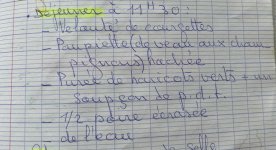 . Déjeuner à 11H30 :
- Velouté de courgettes
- Paupiette (de veau aux cham
pignons) hachée
- Purée de haricots verts + un
soupçon de p.d.t.
- 1/2 poire écrasée
- de l'eau